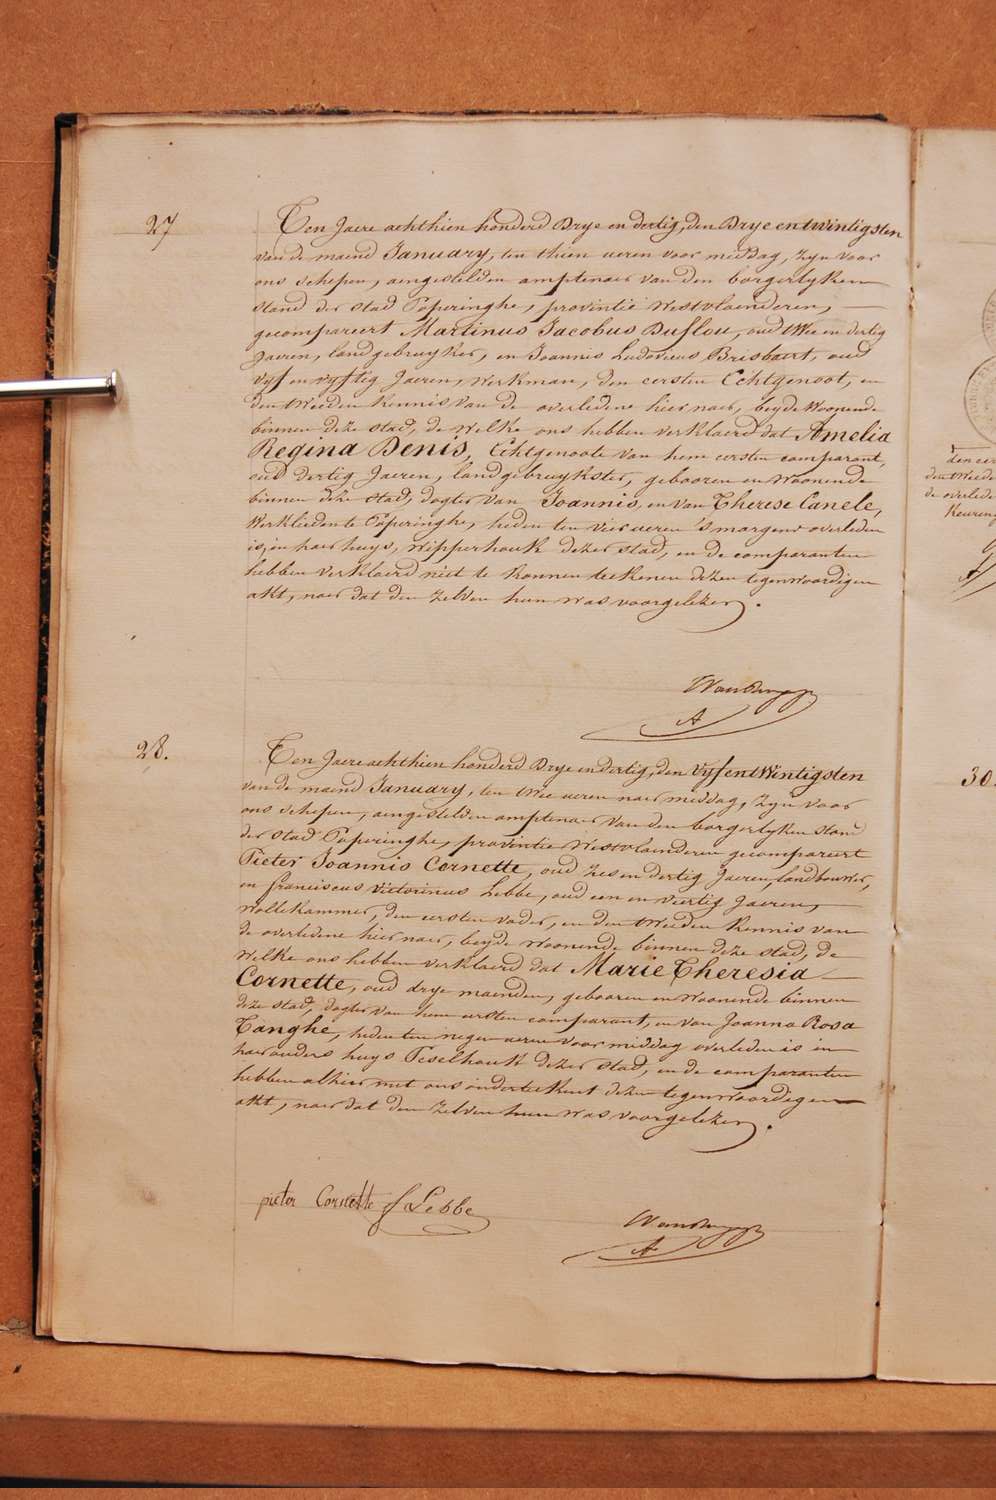 27
Ten Jaere achthien honderd Drye en dertig, den Drye en twintigsten
van de maend January, ten thien ueren voor middag, zyn voor
ons schepen, aengestelden amptenaer van den borgerlyken
stand der stad Poperinghe, provintie Westvlaenderen,
gecompareert Martinus Jacobus Duflou, oud twee en dertig
Jaeren, landgebruyker, en Joannis Ludovicus Brisbaert, oud
vyf en vyftig Jaeren, werkman, den eersten Echtgenoot, en
den tweeden Kennis van de overledene hier naer, beyde woonende
binnen deze stad, de welke ons hebben verklaerd dat Amelia
Regina Denis, Echtgenoote van hem eersten comparant,
oud dertig Jaeren, landgebruykster, gebooren en woonende
binnen deze stad, dogter van Joannis, en van Therese Canele,
Werklieden te Poperinghe, heden ten vier ueren 's morgens overleden
is, in haer huys, Wipperhouk dezer stad, en de comparanten
hebben verklaerd niet te konnen teekenen dezen tegenwoordigen
akt, naer dat den zelven hun was voorgelezen.
A
28.
Ten Jaere achthien honderd Drye en dertig, den vyfentwintigsten
van de maend January, ten twee ueren naer middag, zyn voor
ons schepen, aengestelden amptenaer van den borgerlyken stand
der stad Poperinghe, provintie Westvlaenderen gecompareert
Pieter Joannis Cornette, oud zes en dertig Jaeren, landbouwer,
en franciscus victorinus Lebbe, oud een en viertig Jaeren,
Wollekammer, den eersten vader, en den tweeden Kennis van
de overledene hier naer, beyde woonende binnen deze stad, de
welke ons hebben verklaerd dat Marie Theresia
Cornette, oud drye maenden, gebooren en woonende binnen
deze stad, dogter van hem eersten comparant, en van Joanna Rosa
Tanghe, heden ten negen ueren voor middag overleden is in
haer ouders huys Peselhouk dezer stad, en de comparanten
hebben alhier met ons onderteekent dezen tegenwoordigen
akt, naer dat den zelven hun was voorgelezen.
pieter Cornette f Lebbe
A
den eer
den tweede
de overlede
30.